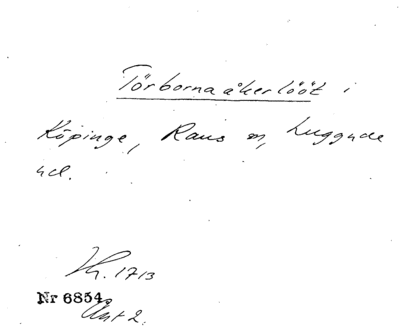 Törbornaåkerlööt i
Köpinge, Raus sn, Luggude
hd.
Lh. 1713
Nr 6854
Akt 2.